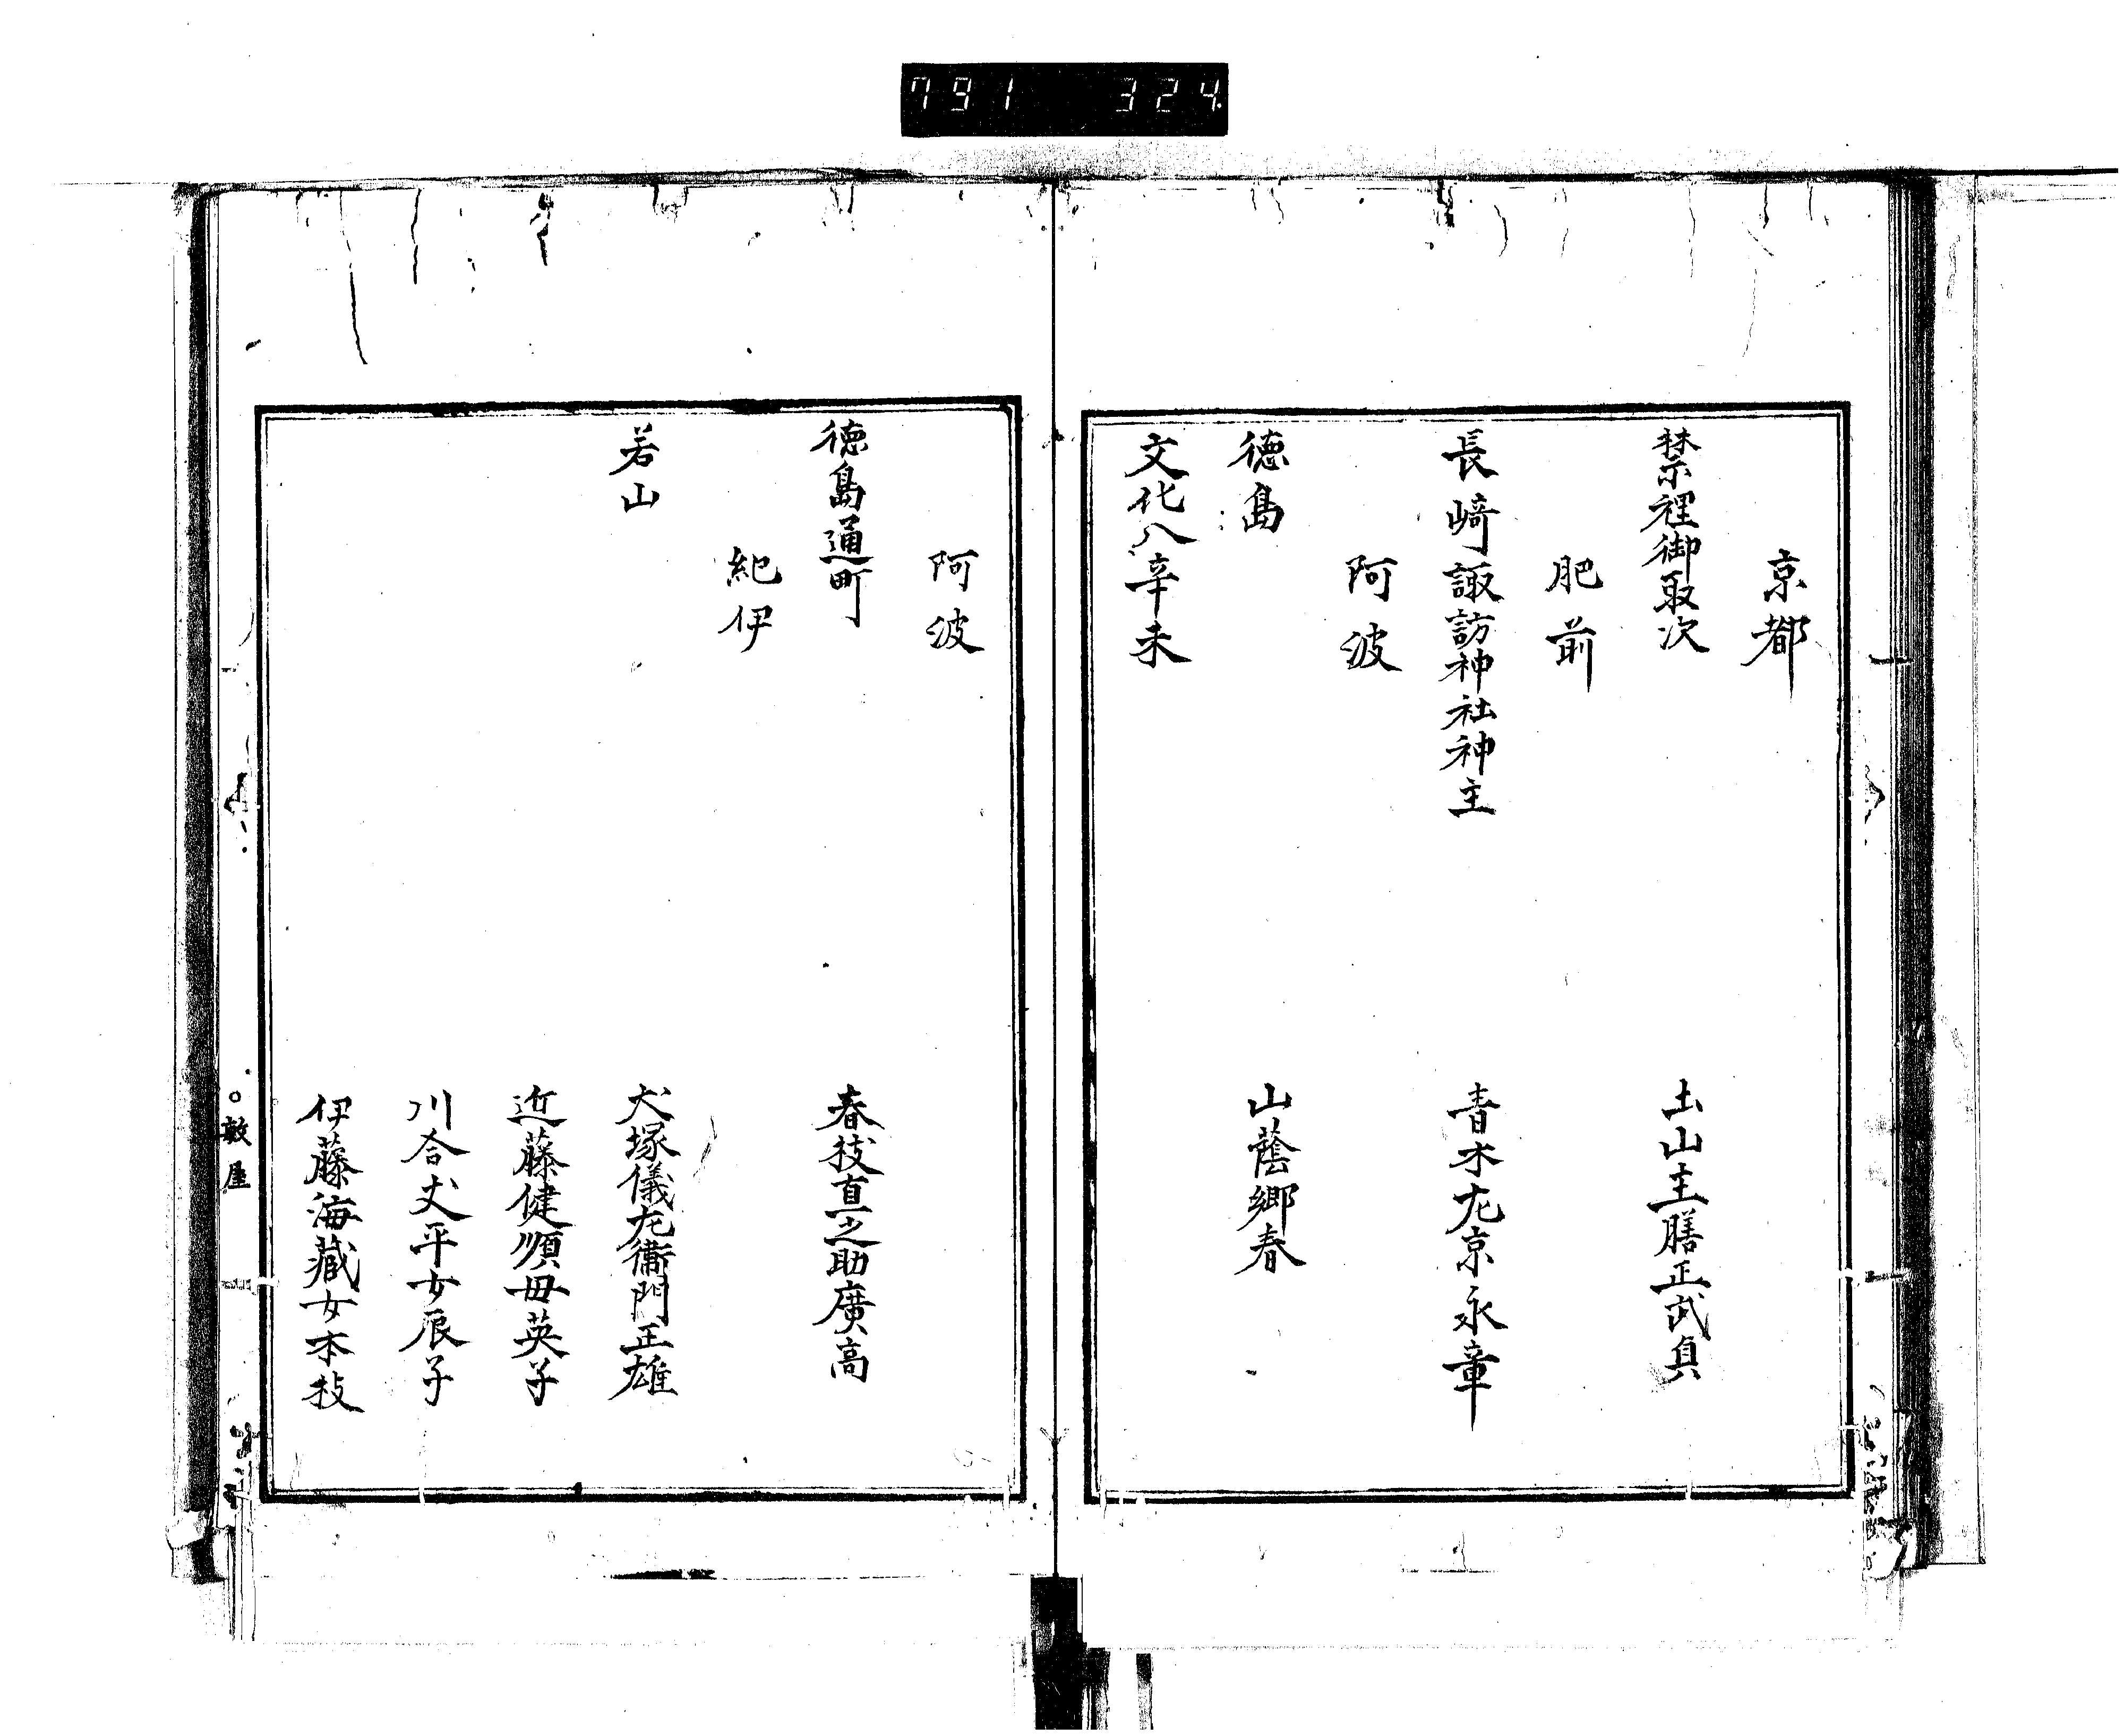 791 324
京都
禁裡御取次 土山主膳正武貞
肥前
長崎諏訪神社神主 青木左京永章
阿波
徳島 山蔭郷春
文化八辛未
阿波
徳島通町 春枝直之助廣高
紀伊
若山 犬塚儀左衛門正雄
近藤健順母英子
川合丈平女辰子
伊藤海藏女本枝